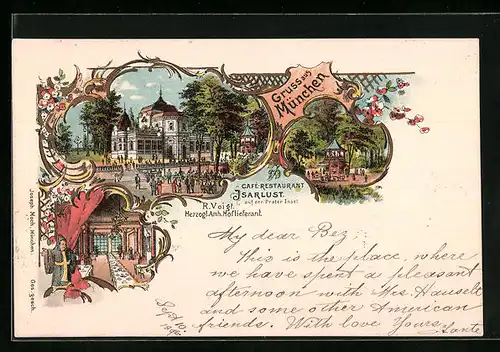 Gruss aus
München
CAFÉ-RESTAURANT
ISARLUST.
auf der Prater Insel
R. Voigt.
Herzogl. Anh. Hoflieferant.
Joseph Moch, München.
Ges. gesch.
My dear Bez:
This is the place, where
we have spent a pleasant
afternoon with Mrs. Hauselt
and some other American
friends. With love Yours,
Tante
Sept. 10.